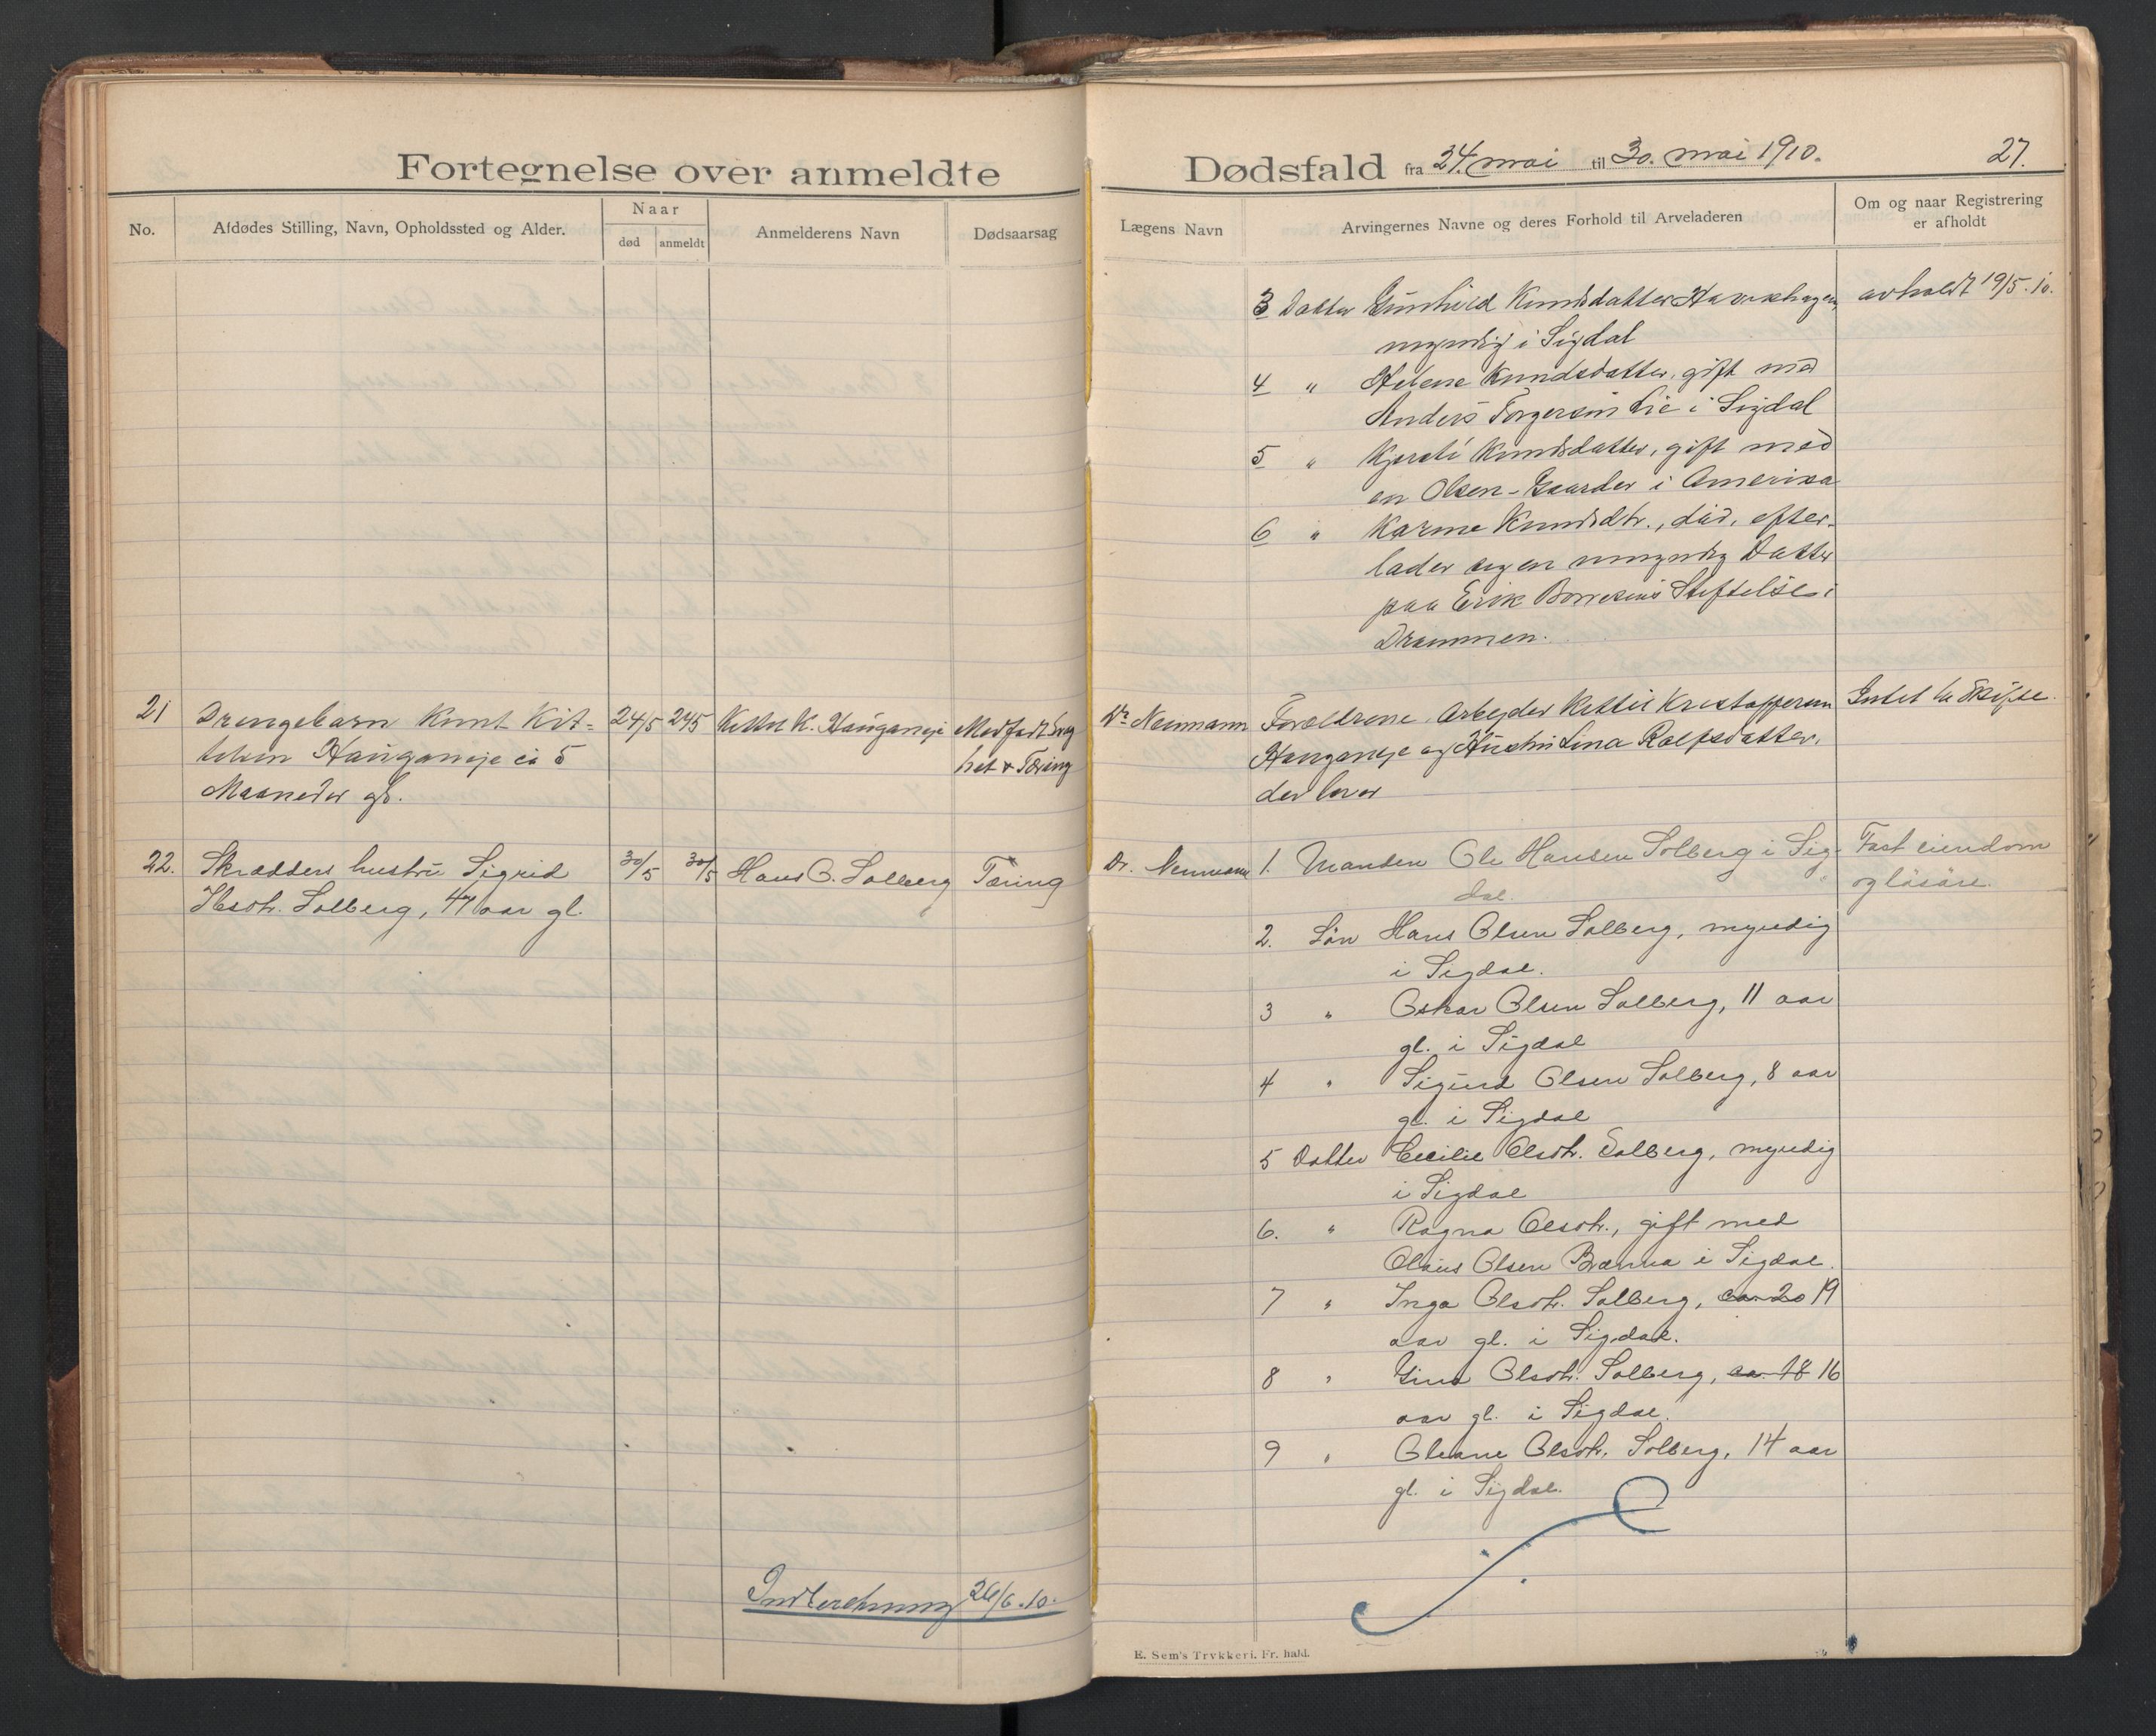 Fortegnelse over anmeldte
Dødsfald fra 24. mai til 30. mai 1910.
27.
No.
Afdødes Stilling, Navn, Opholdssted og Alder.
Naar
død
anmeldt
Anmelderens Navn
Dødsaarsag
Lægens Navn
Arvingernes Navne og deres Forhold til Arveladeren
Om og naar Registrering
er afholdt
3 Datter Gunhild Knudsdatter Haavikhagen, avholdt 19/5.10.
myndig i Sigdal
4 " Helene Knudsdatter, gift med
Anders Torgersen Lie i Sigdal
5 " Kjersti Knudsdatter, gift med
en Olsen-Gaarder i Amerika
6 " Karine Knudsdtr., død, efter-
lader sig en umyndig Datter
paa Erik Børresens Stiftelse i
Drammen.
21 Drengebarn Knut Kit- 24/5 24/5 Kittil K. Hauganeje Medfødt Svag
telsen Hauganeje ca 5 het & Tæring
Maaneder gl.
Dr Neumann Forældrene, Arbejder Kittil Kristoffersen Intet at skifte.
Hauganeje og Hustru Lina Rolfsdatter,
der lever
22. Skrædders hustru Sigrid 30/5 30/5 Hans O. Solberg Tæring
Ibsdtr. Solberg, 47 aar gl.
Dr. Neumann 1. Manden Ole Hansen Solberg i Sig- Fast eiendom
dal. og løsøre.
2. Søn Hans Olsen Solberg, myndig
i Sigdal.
3 " Oskar Olsen Solberg, 11 aar
gl. i Sigdal
4 " Sigurd Olsen Solberg, 8 aar
gl. i Sigdal
5 Datter Cecilie Olsdtr. Solberg, myndig
i Sigdal
6. " Ragna Olsdtr., gift med
Olaus Olsen Brænna i Sigdal.
7 " Inga Olsdtr. Solberg, ca. 20 19
aar gl. i Sigdal.
8 " Gina Olsdtr. Solberg, ca. 18 16
aar gl. i Sigdal.
9 " Oleane Olsdtr. Solberg, 14 aar
gl. i Sigdal.
Indberetning 26/6.10.
E. Sem's Trykkeri, Fr. hald.